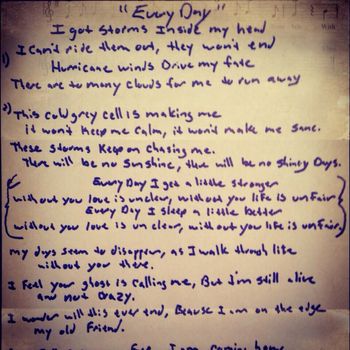 "Every Day"
I got storms Inside my head
1) I Can't ride them out, they won't end
Hurricane winds Drive my fate
There are to many clouds for me to run away
2) This cold grey cell is making me
it won't keep me Calm, it won't make me sane.
These storms Keep on chasing me.
There will be no Sunshine, ther will be no shiney Days.
Every Day I get a little stronger
without you love is unclear, without you life is unfair
Every Day I sleep a little better
without you love is un clear, without you life is unfair
my days seem to disappear, as I walk through life
without you there.
I feel your ghost is calling me, But I'm still alive
and not Crazy.
I wonder will this ever end, Because I am on the edge
my old Friend.
I am coming home